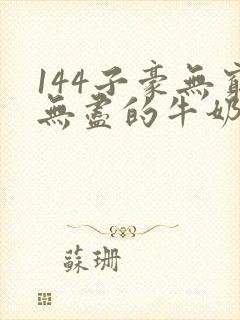 144子豪無窮
無盡的牛奶
蘇珊